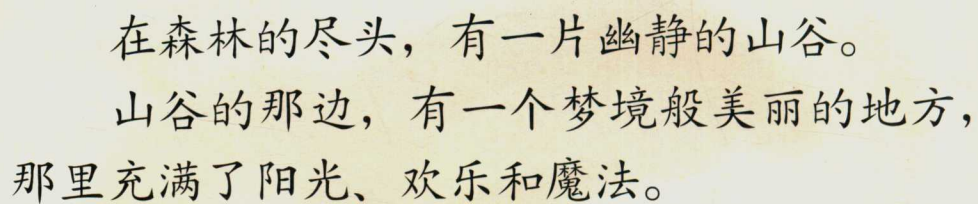 在森林的尽头，有一片幽静的山谷。
山谷的那边，有一个梦境般美丽的地方，
那里充满了阳光、欢乐和魔法。